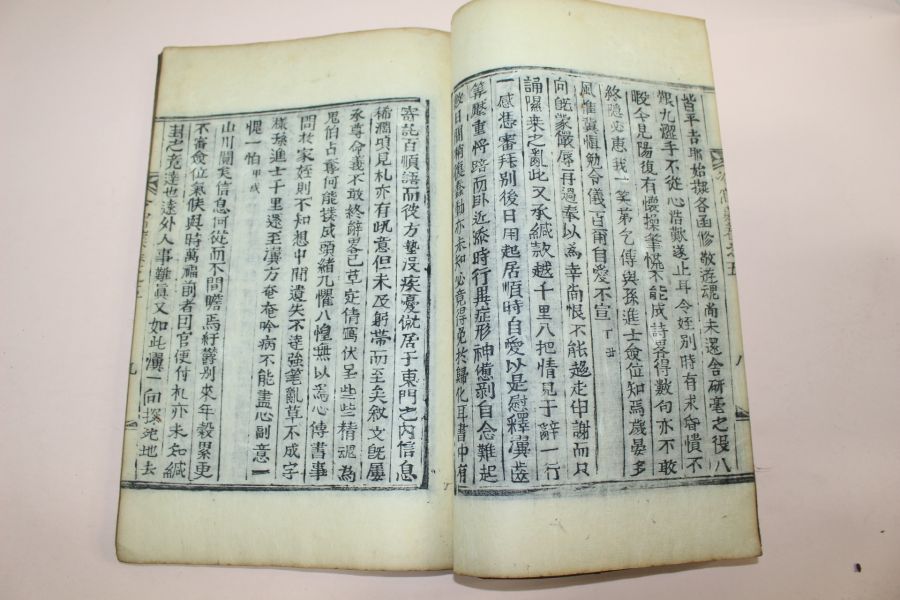 皆平吉耶始擬各函修敬遊魂尚未還舍硏毫之役八
顚九躓手不從心浩歎遂止耳令姪別時有求而憒不
暇今見陽復有懷操筆慌不能成詩畧得數句亦不敢
終隱必恵我一笑弟乞傳與孫進士僉位知焉歲晏多
風惟冀愼勉令儀百爾自愛不宣 丁丑
向旣蒙儼辱再過奉以爲幸尙恨不能趍走申謝而只
誦隰桑之亂此又承緘款越千里八把情見于辭一行
一感憑審拜別後日用起居順時自愛以是慰釋瀷齒
筭驟重悼路而臥近添時行異症形神憊剝自念難起
日間 亦未知必竟得免於歸化耳書中有
寄託百順語而彼方墊沒疾憂僦居于東門之內信息
稀濶頃見札亦有吪意但未及躬帶而至矣敘文旣屢
承尊命義不敢終辭畧已草定倩寫伏呈些些精魂爲
鬼伯占奪何能揍成頭緖九懼八惶無以爲心傳書事
問故家姪則不知想中間遺失不達強筆亂草不成字
樣孫進士千里還至瀷方奄奄吟病不能盡心副意一
愧一怕 甲戌
山川關失信息何從而不問瞻焉紆欝別來年穀累更
不審僉位氣候與時萬福前者因官便付札亦未知緘
封之竟達也達外人事難眞又如此瀷一向探兆地去